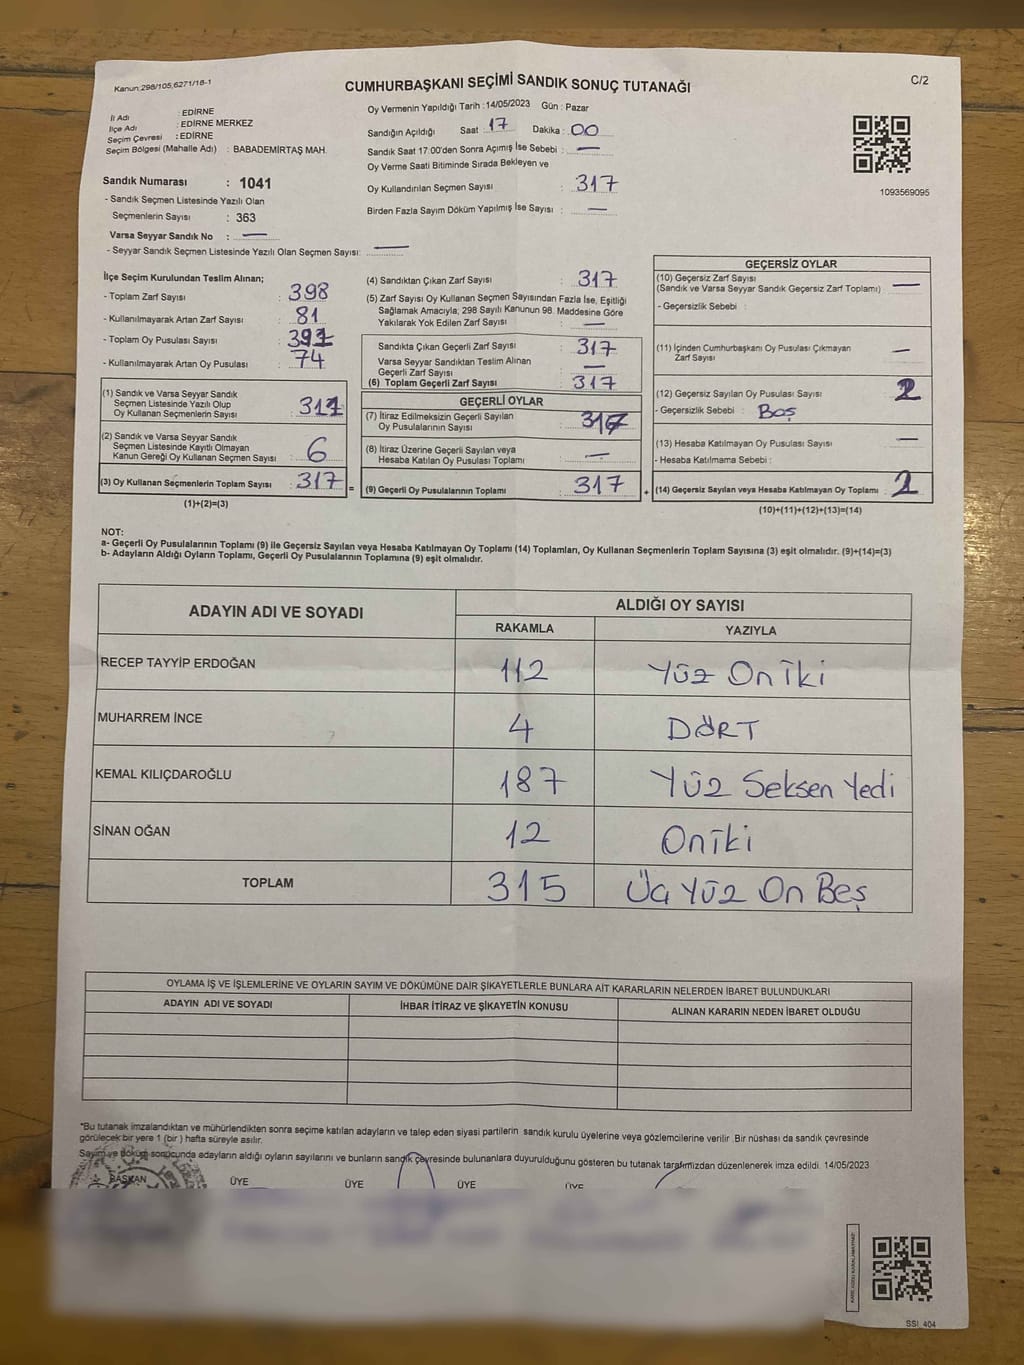 Kanun:298/105,6271/18-1
CUMHURBAŞKANI SEÇİMİ SANDIK SONUÇ TUTANAĞI
C/2
İl Adı : EDİRNE
İlçe Adı : EDİRNE MERKEZ
Seçim Çevresi : EDİRNE
Seçim Bölgesi (Mahalle Adı) : BABADEMİRTAŞ MAH.
Sandık Numarası : 1041
- Sandık Seçmen Listesinde Yazılı Olan
Seçmenlerin Sayısı : 363
Varsa Seyyar Sandık No : —
- Seyyar Sandık Seçmen Listesinde Yazılı Olan Seçmen Sayısı: —
Oy Vermenin Yapıldığı Tarih :14/05/2023 Gün : Pazar
Sandığın Açıldığı Saat 17 Dakika : 00
Sandık Saat 17:00'den Sonra Açımış İse Sebebi : —
Oy Verme Saati Bitiminde Sırada Bekleyen ve
Oy Kullandırılan Seçmen Sayısı : 317
Birden Fazla Sayım Döküm Yapılmış İse Sayısı : —
1093569095
İlçe Seçim Kurulundan Teslim Alınan;
- Toplam Zarf Sayısı : 398
- Kullanılmayarak Artan Zarf Sayısı : 81
- Toplam Oy Pusulası Sayısı : 391
- Kullanılmayarak Artan Oy Pusulası : 74
(1) Sandık ve Varsa Seyyar Sandık
Seçmen Listesinde Yazılı Olup
Oy Kullanan Seçmenlerin Sayısı : 311
(2) Sandık ve Varsa Seyyar Sandık
Seçmen Listesinde Kayıtlı Olmayan
Kanun Gereği Oy Kullanan Seçmen Sayısı : 6
(3) Oy Kullanan Seçmenlerin Toplam Sayısı : 317 =
(1)+(2)=(3)
(4) Sandıktan Çıkan Zarf Sayısı : 317
(5) Zarf Sayısı Oy Kullanan Seçmen Sayısından Fazla İse, Eşitliği
Sağlamak Amacıyla; 298 Sayılı Kanunun 98. Maddesine Göre
Yakılarak Yok Edilen Zarf Sayısı : —
Sandıkta Çıkan Geçerli Zarf Sayısı : 317
Varsa Seyyar Sandıktan Teslim Alınan
Geçerli Zarf Sayısı : —
(6) Toplam Geçerli Zarf Sayısı : 317
GEÇERLİ OYLAR
(7) İtiraz Edilmeksizin Geçerli Sayılan
Oy Pusulalarının Sayısı :
(8) İtiraz Üzerine Geçerli Sayılan veya
Hesaba Katılan Oy Pusulası Toplamı : —
(9) Geçerli Oy Pusulalarının Toplamı : 317 +
GEÇERSİZ OYLAR
(10) Geçersiz Zarf Sayısı
(Sandık ve Varsa Seyyar Sandık Geçersiz Zarf Toplamı) : —
- Geçersizlik Sebebi :
(11) İçinden Cumhurbaşkanı Oy Pusulası Çıkmayan
Zarf Sayısı : —
(12) Geçersiz Sayılan Oy Pusulası Sayısı : 2
- Geçersizlik Sebebi : Boş
(13) Hesaba Katılmayan Oy Pusulası Sayısı : —
- Hesaba Katılmama Sebebi :
(14) Geçersiz Sayılan veya Hesaba Katılmayan Oy Toplamı : 2
(10)+(11)+(12)+(13)=(14)
NOT:
a- Geçerli Oy Pusulalarının Toplamı (9) ile Geçersiz Sayılan veya Hesaba Katılmayan Oy Toplamı (14) Toplamları, Oy Kullanan Seçmenlerin Toplam Sayısına (3) eşit olmalıdır. (9)+(14)=(3)
b- Adayların Aldığı Oyların Toplamı, Geçerli Oy Pusulalarının Toplamına (9) eşit olmalıdır.
ADAYIN ADI VE SOYADI ALDIĞI OY SAYISI
RAKAMLA YAZIYLA
RECEP TAYYİP ERDOĞAN 112 Yüz Oniki
MUHARREM İNCE 4 DÖRT
KEMAL KILIÇDAROĞLU 187 Yüz Seksen Yedi
SİNAN OĞAN 12 Oniki
TOPLAM 315 Üç Yüz On Beş
OYLAMA İŞ VE İŞLEMLERİNE VE OYLARIN SAYIM VE DÖKÜMÜNE DAİR ŞİKAYETLERLE BUNLARA AİT KARARLARIN NELERDEN İBARET BULUNDUKLARI
ADAYIN ADI VE SOYADI İHBAR İTİRAZ VE ŞİKAYETİN KONUSU ALINAN KARARIN NEDEN İBARET OLDUĞU
*Bu tutanak imzalandıktan ve mühürlendikten sonra seçime katılan adayların ve talep eden siyasi partilerin sandık kurulu üyelerine veya gözlemcilerine verilir .Bir nüshası da sandık çevresinde
görülecek bir yere 1 (bir ) hafta süreyle asılır.
Sayım ve döküm sonucunda adayların aldığı oyların sayılarını ve bunların sandık çevresinde bulunanlara duyurulduğunu gösteren bu tutanak tarafımızdan düzenlenerek imza edildi. 14/05/2023
BAŞKAN ÜYE ÜYE ÜYE ÜYE
SSİ_404